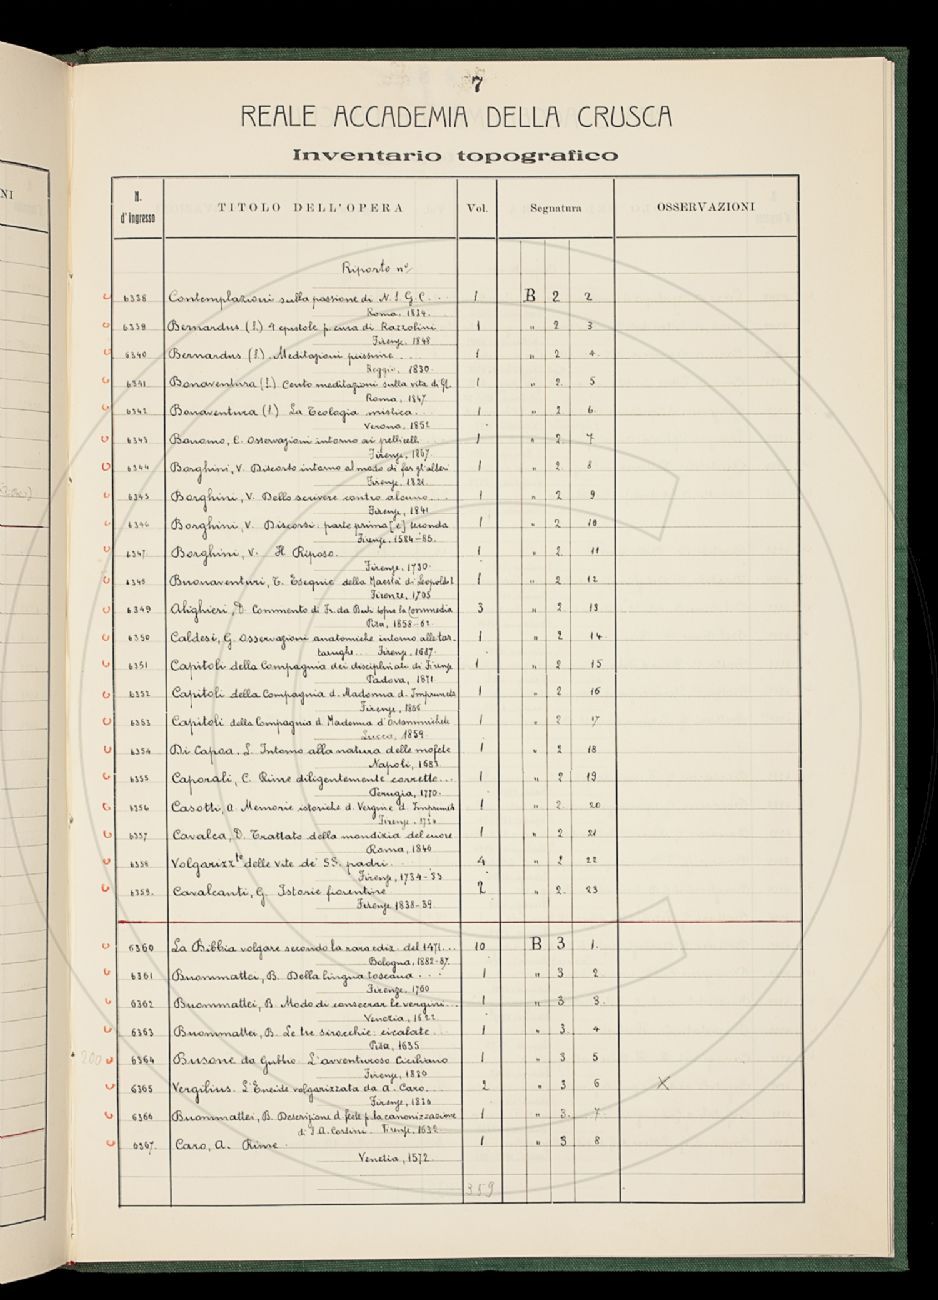 NI
7
REALE ACCADEMIA DELLA CRUSCA
Inventario topografico
N. d'Ingresso TITOLO DELL'OPERA Vol. Segnatura OSSERVAZIONI
Riporto n°
6338 Contemplazioni sulla passione di N. S. G. C. ... 1 B 2 2
Roma, 1834.
6339 Bernardus (S.) 4 epistole p. cura di Razzolini 1 " 2 3
Firenze, 1848
6340 Bernardus (S.). Meditazioni piissime ... 1 " 2 4
Reggio, 1830.
6341 Bonaventura (S.) Cento meditazioni sulla vita di G. 1 " 2 5
Roma, 1847.
6342 Bonaventura (S.) La Teologia mistica .. 1 " 2 6
Verona, 1852
6343 Bonomo, C. Osservazioni intorno ai pellicelli 1 " 2 7
Firenze, 1687.
6344 Borghini, V. Discorso intorno al modo di far gl'alberi 1 " 2 8
Firenze, 1821.
6345 Borghini, V. Dello scrivere contro alcuno ... 1 " 2 9
Firenze, 1841
6346 Borghini, V. Discorsi: parte prima [e] seconda 1 " 2 10
Firenze, 1584-85.
6347 Borghini, V. Il Riposo. 1 " 2 11
Firenze, 1730.
6348 Buonaventuri, T. Esequie della Maestà di Leopoldo I 1 " 2 12
Firenze, 1705
6349 Alighieri, D. Commento di Fr. da Buti sopra la Commedia 3 " 2 13
Pisa, 1858-62.
6350 Caldesi, G. Osservazioni anatomiche intorno alle tar- 1 " 2 14
tarughe ... Firenze, 1687.
6351 Capitoli della Compagnia dei disciplinati di Firenze 1 " 2 15
Padova, 1871.
6352 Capitoli della Compagnia d. Madonna d. Impruneta 1 " 2 16
Firenze, 1866
6353 Capitoli della Compagnia d. Madonna d'Orsanmichele 1 " 2 17
Lucca, 1859.
6354 Di Capoa, L. Intorno alla natura delle mofete 1 " 2 18
Napoli, 1683.
6355 Caporali, C. Rime diligentemente corrette ... 1 " 2 19
Perugia, 1770.
6356 Casotti, A. Memorie istoriche d. Vergine d. Impruneta 1 " 2 20
Firenze, 1714
6357 Cavalca, D. Trattato della mondizia del cuore 1 " 2 21
Roma, 1846
6358 Volgarizz.te delle vite de' SS. padri. 4 " 2 22
Firenze, 1734-35
6359. Cavalcanti, G. Istorie fiorentine 2 " 2 23
Firenze 1838-39.
6360 La Bibbia volgare secondo la rara ediz. del 1471 ... 10 B 3 1.
Bologna, 1882-87.
6361 Buommattei, B. Della lingua toscana ... 1 " 3 2
Firenze, 1760
6362 Buommattei, B. Modo di consecrar le vergini ... 1 " 3 3.
Venezia, 1622
6363 Buommattei, B. Le tre sirocchie: cicalate. 1 " 3 4
Pisa, 1635
200 6364 Busone da Gubbio. L'avventuroso Ciciliano 1 " 3 5
Firenze, 1830
6365 Vergilius. L'Eneide volgarizzata da A. Caro ... 2 " 3 6 X
Firenze, 1836
6366 Buommattei, B. Descrizione d. feste p. la canonizzazione 1 " 3. 7
di S. A. Corsini. Firenze, 1632.
6367. Caro, A. Rime. 1 " 3 8
Venezia, 1572.
359